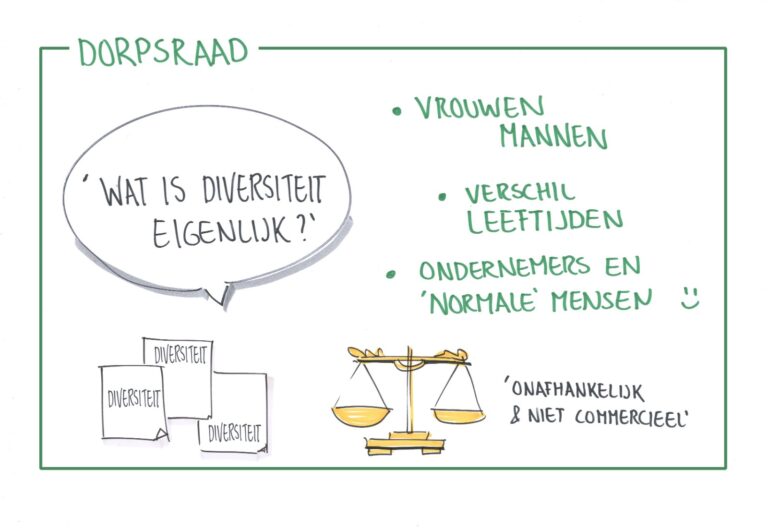 DORPSRAAD
'WAT IS DIVERSITEIT
EIGENLIJK?'
• VROUWEN
MANNEN
• VERSCHIL
LEEFTIJDEN
• ONDERNEMERS EN
'NORMALE' MENSEN
DIVERSITEIT
DIVERSITEIT
DIVERSITEIT
'ONAFHANKELIJK
& NIET COMMERCIEEL'